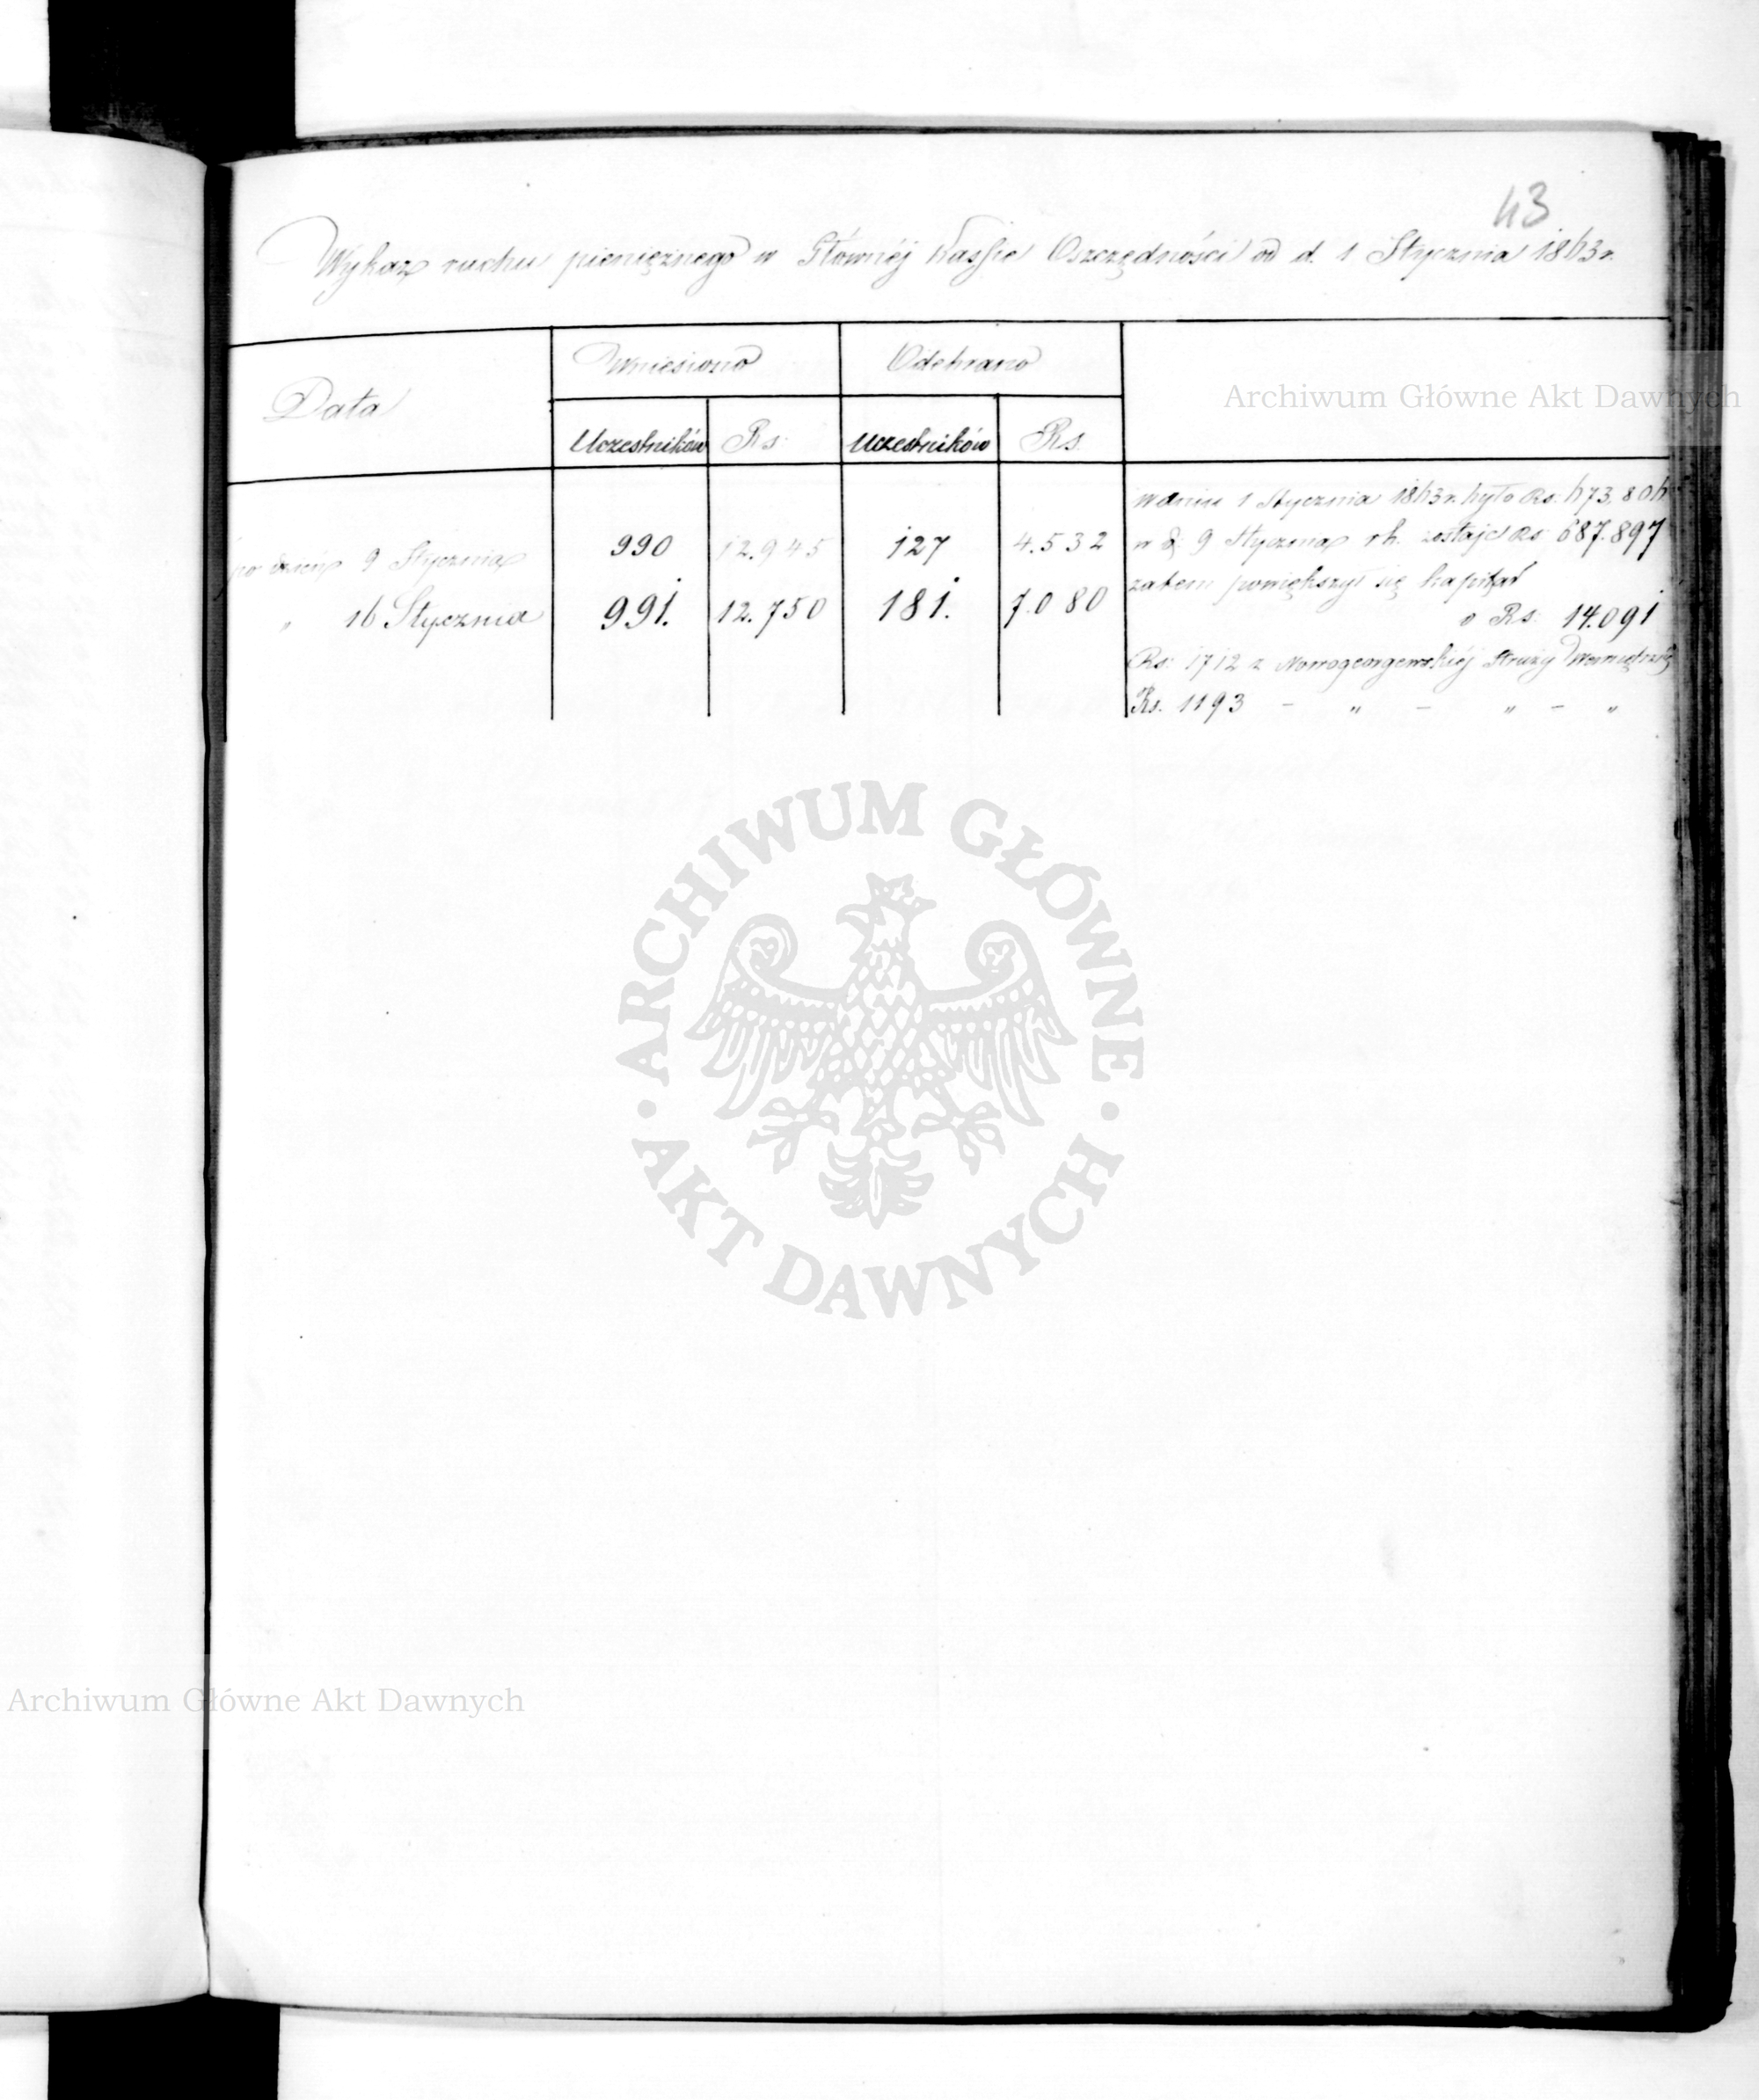 43
Wykaz ruchu pieniężnego w Głównéj Kassie Oszczędności od d. 1 Stycznia 1863 r.
Data
Wniesiono
Odebrano
Uczestników
Rs.
Uczestników
Rs.
po dzień 9 Stycznia 990 12.945 127 4.532
" 16 Stycznia 991. 12.750 181. 7.080
w dniu 1 Stycznia 1863 r. było Rs: 673.806
w d: 9 Stycznia rb. zostaje Rs: 687.897
zatem powiększył się kapitał
o Rs. 14.091
Rs: 1712 z Nowogeorgewskiéj Straży Wewnętrznéj
Rs. 1193 – " – " – "
Archiwum Główne Akt Dawnych
ARCHIWUM GŁÓWNE
AKT DAWNYCH
Archiwum Główne Akt Dawnych